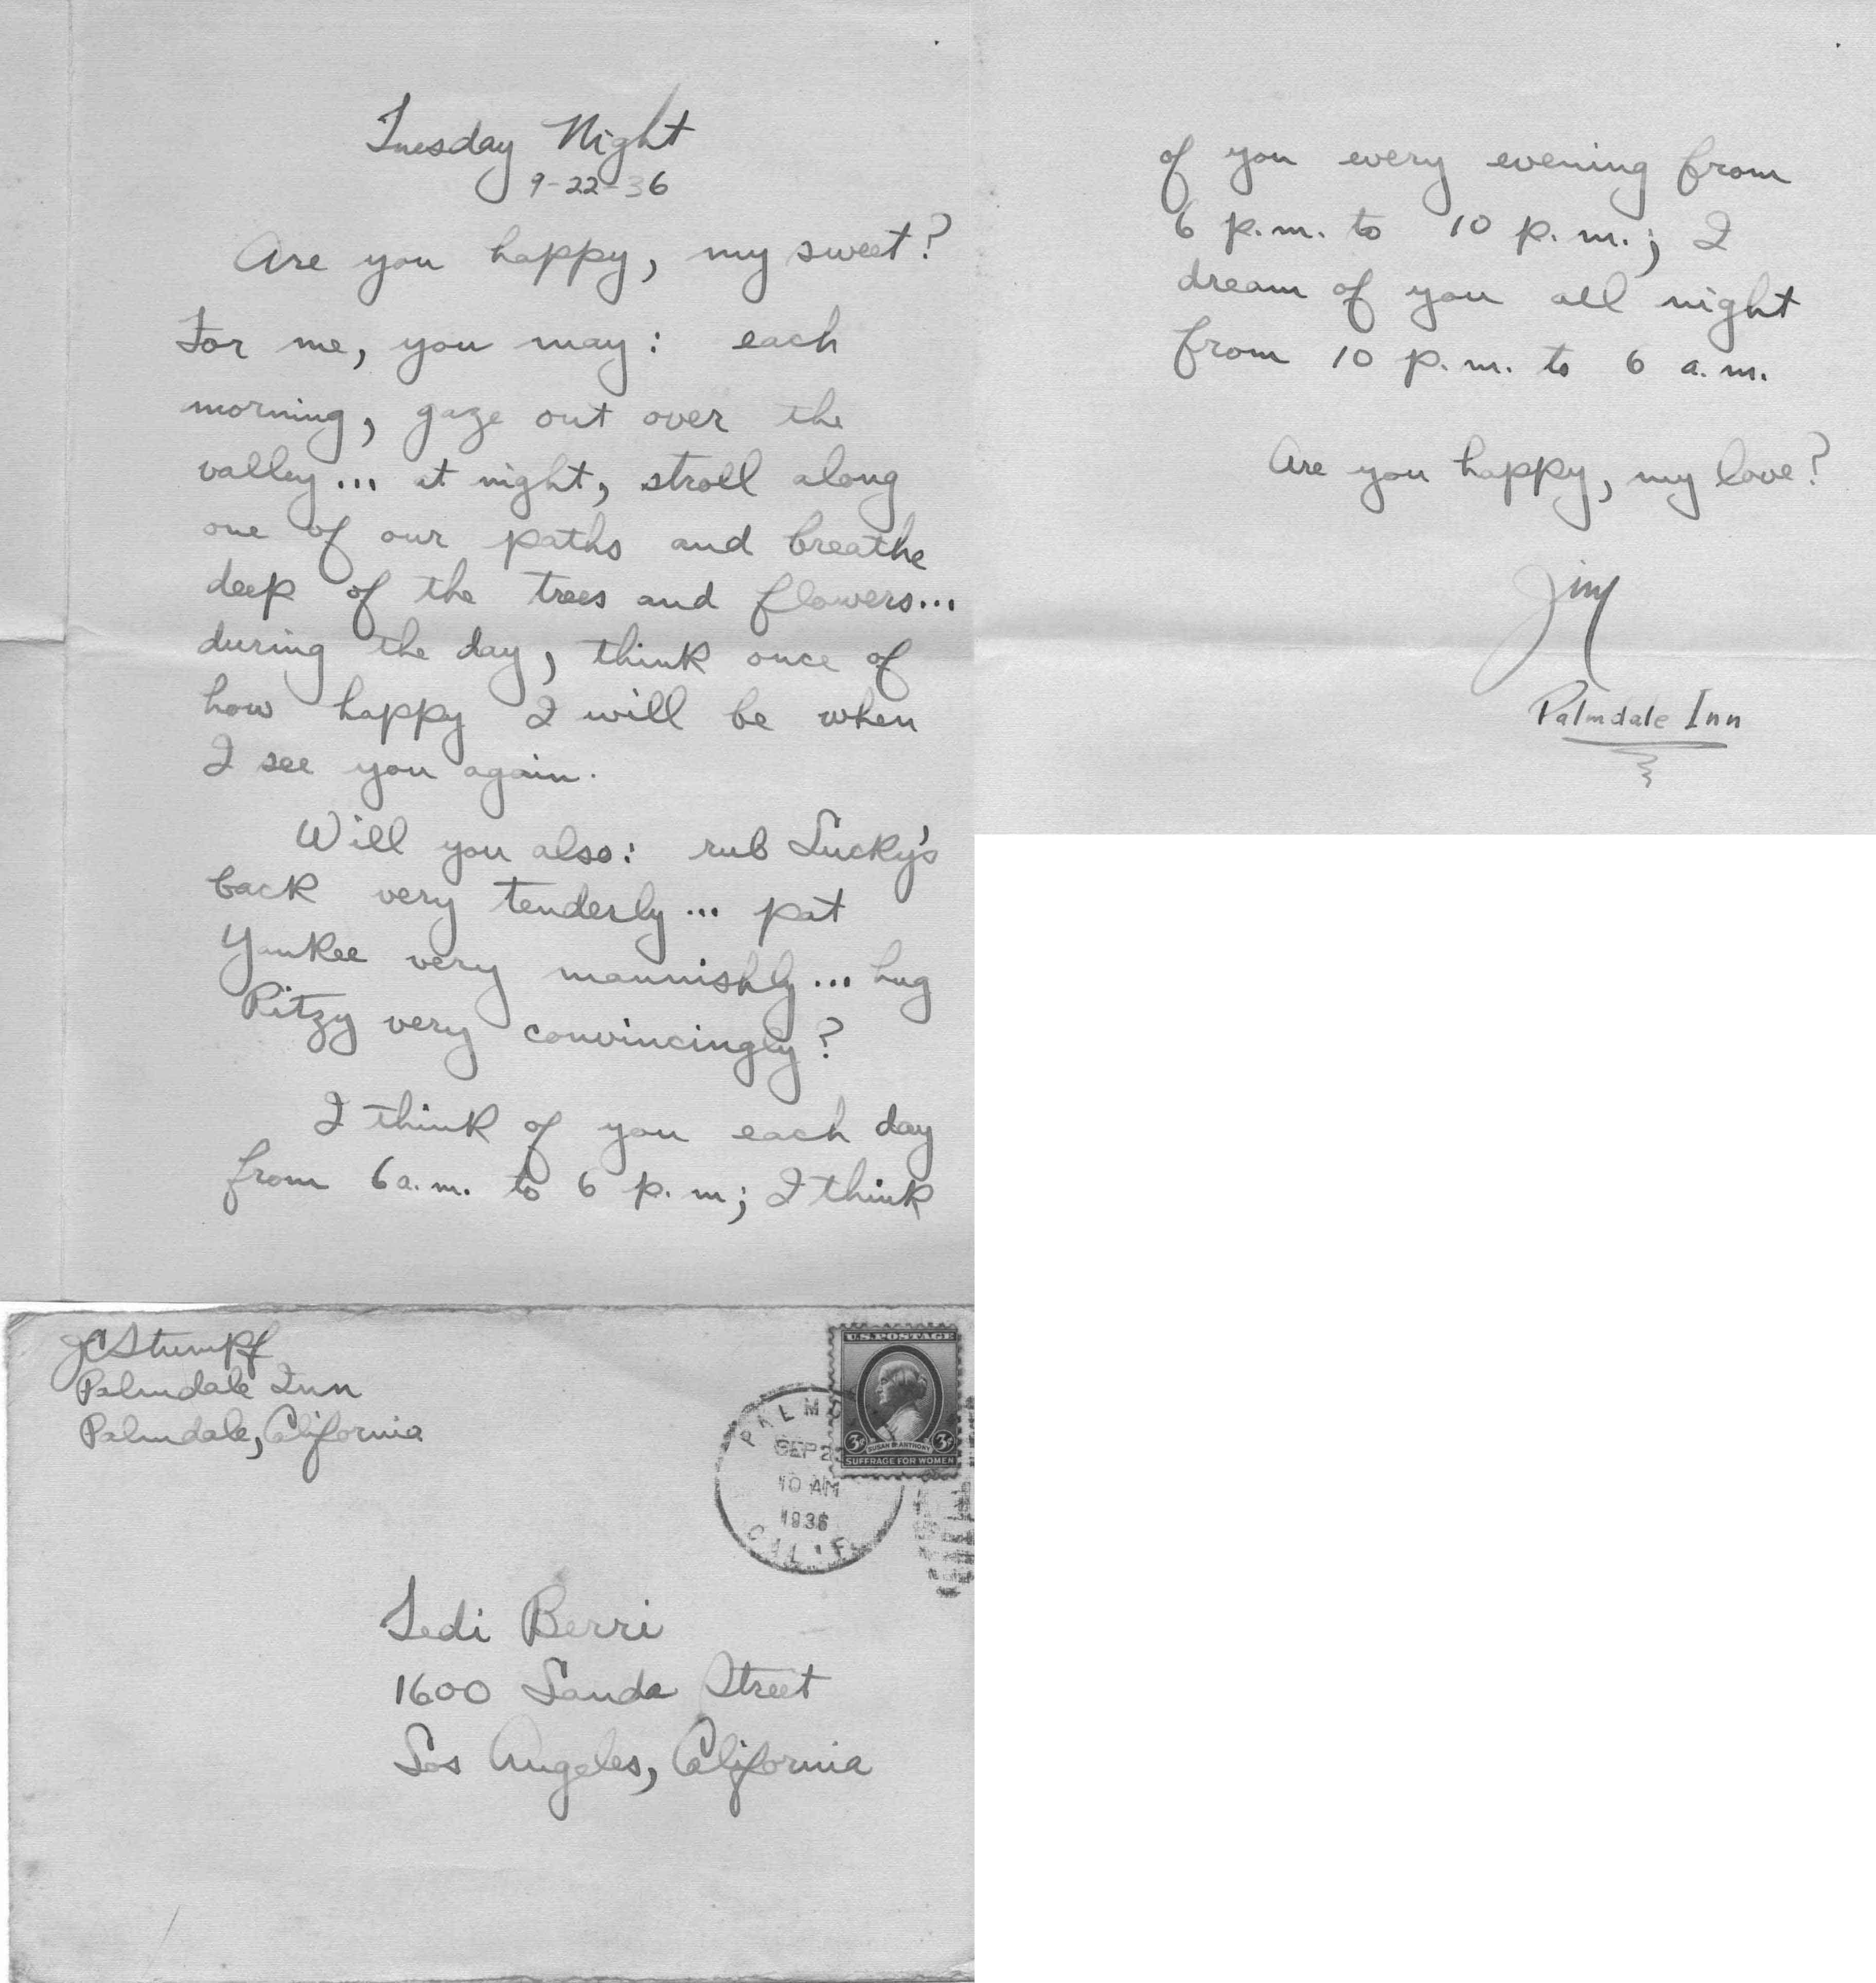 Tuesday Night
9-22-36
Are you happy, my sweet?
For me, you may: each
morning, gaze out over the
valley... at night, stroll along
one of our paths and breathe
deep of the trees and flowers...
during the day, think once of
how happy I will be when
I see you again.
Will you also: rub Lucky's
back very tenderly... pat
Yankee very mannishly... hug
Ritzy very convincingly?
I think of you each day
from 6 a.m. to 6 p.m; I think
of you every evening from
6 p.m. to 10 p.m.; I
dream of you all night
from 10 p.m. to 6 a.m.
Are you happy, my love?
Jim
Palmdale Inn
JC Stumpf
Palmdale Inn
Palmdale, California
U.S. POSTAGE
3¢ SUSAN B. ANTHONY 3¢
SUFFRAGE FOR WOMEN
PALM
SEP 2
10 AM
1936
CALIF
Tedi Berri
1600 Street
Los Angeles, California